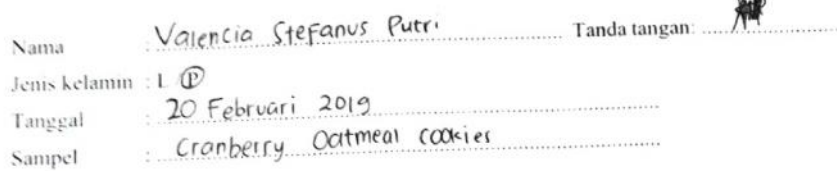 Nama : Valencia Stefanus Putri Tanda tangan:
Jenis kelamin : L P
Tanggal : 20 Februari 2019
Sampel : Cranberry Oatmeal cookies